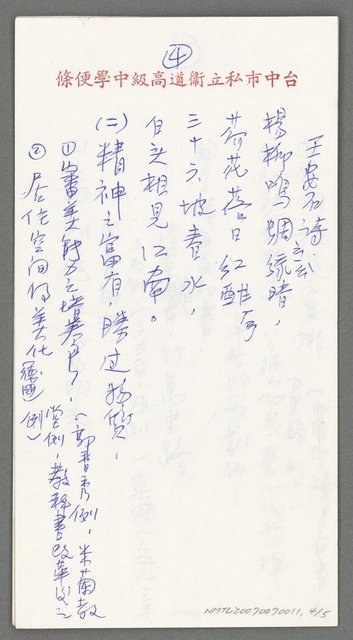 ④
台中市私立衛道高級中學便條
王安石詩云
楊柳鳴蜩綠暗，
荷花落日紅酣，
三十六坡春水，
白頭相見江南。
(二)精神之富有，勝過物質，
①審美能力之培養。(郭普秀例，米蘭教堂例，教科書改革後之
②居住空間的美化(德國例)
NMTL20070070011, 4/5